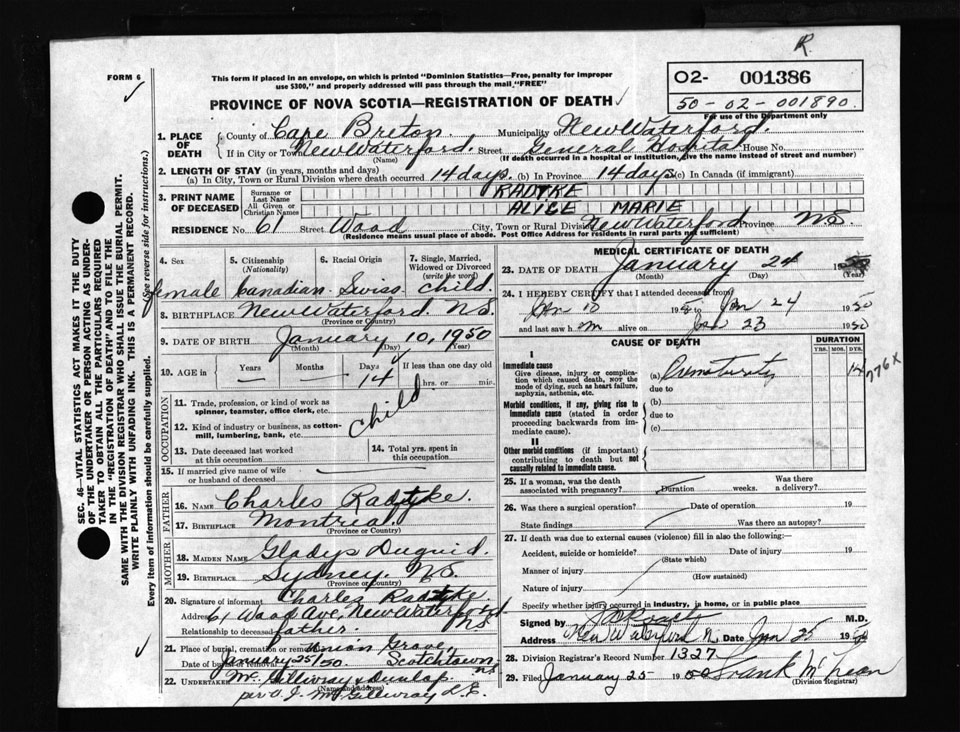 R.
FORM 6
This form if placed in an envelope, on which is printed "Dominion Statistics—Free, penalty for improper
use $300," and properly addressed will pass through the mail, "FREE"
PROVINCE OF NOVA SCOTIA—REGISTRATION OF DEATH
O2- 001386
50-02-001890.
For use of the Department only
1. PLACE OF DEATH County of Cape Breton. Municipality of New Waterford.
If in City or Town New Waterford. Street General Hospital House No.
(Name) (If death occurred in a hospital or institution, give the name instead of street and number)
2. LENGTH OF STAY (in years, months and days)
(a) In City, Town or Rural Division where death occurred 14 days. (b) In Province 14 days (c) In Canada (if immigrant)
3. PRINT NAME OF DECEASED Surname or Last Name RADTKE
All Given or Christian Names ALICE MARIE
RESIDENCE No. 61 Street Wood City, Town or Rural Division New Waterford Province NS
(Residence means usual place of abode. Post Office Address for residents in rural parts not sufficient)
4. Sex female
5. Citizenship (Nationality) Canadian
6. Racial Origin Swiss
7. Single, Married, Widowed or Divorced (write the word) child.
8. BIRTHPLACE New Waterford. NS.
(Province or Country)
9. DATE OF BIRTH January 10, 1950
(Month) (Day) (Year)
10. AGE in Years — Months — Days 14 If less than one day old hrs. or min.
OCCUPATION
11. Trade, profession, or kind of work as
spinner, teamster, office clerk, etc.
child
12. Kind of industry or business, as cotton-
mill, lumbering, bank, etc.
13. Date deceased last worked
at this occupation
14. Total yrs. spent in
this occupation
15. If married give name of wife
or husband of deceased
FATHER
16. NAME Charles Radtke.
17. BIRTHPLACE Montreal.
(Province or Country)
MOTHER
18. MAIDEN NAME Gladys Duguid.
19. BIRTHPLACE Sydney. NS.
(Province or Country)
20. Signature of informant Charles Radtke.
Address 61 Wood Ave, New Waterford NS
Relationship to deceased father.
21. Place of burial, cremation or removal Union Grove, Scotchtown NS
Date of burial or removal January 25/50.
22. UNDERTAKER McGillivray & Dunlap.
(Name and address)
per J. McGillivray
MEDICAL CERTIFICATE OF DEATH
23. DATE OF DEATH January 24 1950
(Month) (Day) (Year)
24. I HEREBY CERTIFY that I attended deceased from
Jan 10 1950 Jan 24 1950
and last saw h m alive on Jan 23 1950
CAUSE OF DEATH
DURATION
YRS. MOS. DYS.
I
Immediate cause
Give disease, injury or complica-
tion which caused death, NOT the
mode of dying, such as heart failure,
asphyxia, asthenia, etc.
(a) Prematurity 14
due to
776X
Morbid conditions, if any, giving rise to
immediate cause (stated in order
proceeding backwards from im-
mediate cause).
(b)
due to
(c)
II
Other morbid conditions (if important)
contributing to death but not
causally related to immediate cause.
25. If a woman, was the death
associated with pregnancy? Duration weeks. Was there
a delivery?
26. Was there a surgical operation? Date of operation 19
State findings Was there an autopsy?
27. If death was due to external causes (violence) fill in also the following:—
Accident, suicide or homicide? Date of injury 19
(State which)
Manner of injury
(How sustained)
Nature of injury
Specify whether injury occurred in industry, in home, or in public place
Signed by M.D.
Address New Waterford N. Date Jan 25 1950
28. Division Registrar's Record Number 1327
29. Filed January 25 1950 Frank McLean
(Division Registrar)
SEC. 46—VITAL STATISTICS ACT MAKES IT THE DUTY
OF THE UNDERTAKER OR PERSON ACTING AS UNDER-
TAKER TO OBTAIN ALL THE PARTICULARS REQUIRED
IN THE "REGISTRATION OF DEATH" AND TO FILE THE
SAME WITH THE DIVISION REGISTRAR WHO SHALL ISSUE THE BURIAL PERMIT.
WRITE PLAINLY WITH UNFADING INK. THIS IS A PERMANENT RECORD.
Every item of information should be carefully supplied. (See reverse side for instructions.)